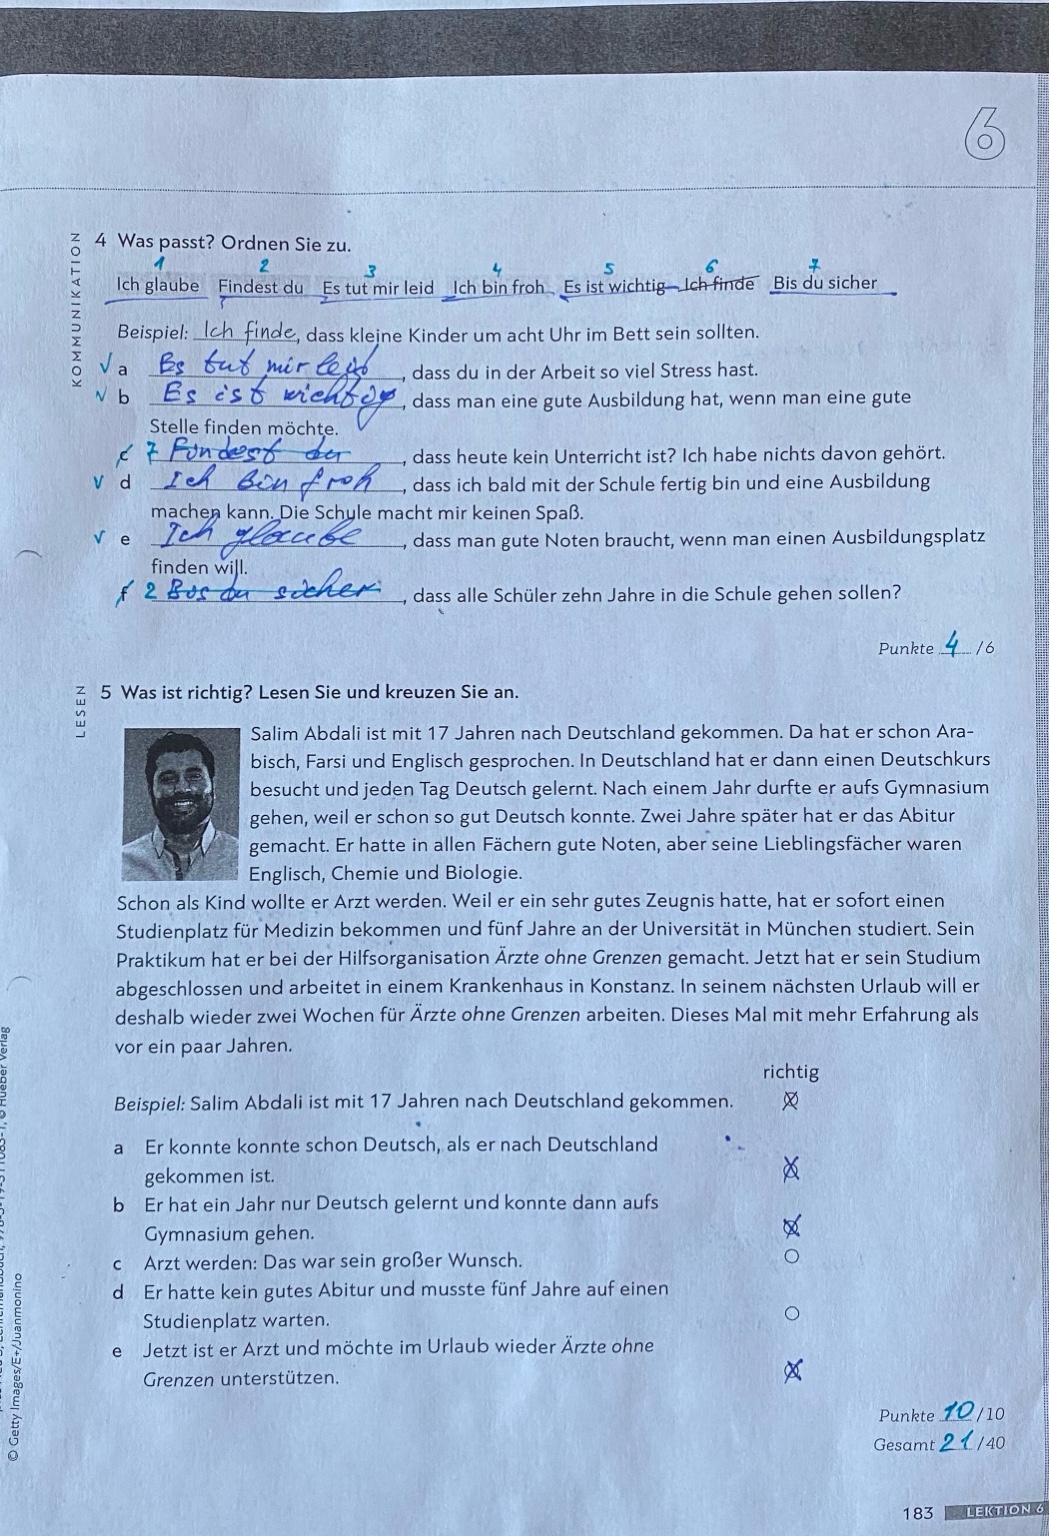 6
KOMMUNIKATION
4 Was passt? Ordnen Sie zu.
1 2 3 4 5 6 7
Ich glaube Findest du Es tut mir leid Ich bin froh Es ist wichtig Ich finde Bis du sicher
Beispiel: Ich finde, dass kleine Kinder um acht Uhr im Bett sein sollten.
√ a Es tut mir leid, dass du in der Arbeit so viel Stress hast.
√ b Es ist wichtig, dass man eine gute Ausbildung hat, wenn man eine gute
Stelle finden möchte.
c 7 Findest du, dass heute kein Unterricht ist? Ich habe nichts davon gehört.
√ d Ich bin froh, dass ich bald mit der Schule fertig bin und eine Ausbildung
machen kann. Die Schule macht mir keinen Spaß.
√ e Ich glaube, dass man gute Noten braucht, wenn man einen Ausbildungsplatz
finden will.
f 2 Bis du sicher, dass alle Schüler zehn Jahre in die Schule gehen sollen?
Punkte 4 /6
LESEN
5 Was ist richtig? Lesen Sie und kreuzen Sie an.
Salim Abdali ist mit 17 Jahren nach Deutschland gekommen. Da hat er schon Ara-
bisch, Farsi und Englisch gesprochen. In Deutschland hat er dann einen Deutschkurs
besucht und jeden Tag Deutsch gelernt. Nach einem Jahr durfte er aufs Gymnasium
gehen, weil er schon so gut Deutsch konnte. Zwei Jahre später hat er das Abitur
gemacht. Er hatte in allen Fächern gute Noten, aber seine Lieblingsfächer waren
Englisch, Chemie und Biologie.
Schon als Kind wollte er Arzt werden. Weil er ein sehr gutes Zeugnis hatte, hat er sofort einen
Studienplatz für Medizin bekommen und fünf Jahre an der Universität in München studiert. Sein
Praktikum hat er bei der Hilfsorganisation Ärzte ohne Grenzen gemacht. Jetzt hat er sein Studium
abgeschlossen und arbeitet in einem Krankenhaus in Konstanz. In seinem nächsten Urlaub will er
deshalb wieder zwei Wochen für Ärzte ohne Grenzen arbeiten. Dieses Mal mit mehr Erfahrung als
vor ein paar Jahren.
richtig
Beispiel: Salim Abdali ist mit 17 Jahren nach Deutschland gekommen.
a Er konnte konnte schon Deutsch, als er nach Deutschland
gekommen ist.
b Er hat ein Jahr nur Deutsch gelernt und konnte dann aufs
Gymnasium gehen.
c Arzt werden: Das war sein großer Wunsch.
d Er hatte kein gutes Abitur und musste fünf Jahre auf einen
Studienplatz warten.
e Jetzt ist er Arzt und möchte im Urlaub wieder Ärzte ohne
Grenzen unterstützen.
Punkte 10 /10
Gesamt 21 /40
183 LEKTION 6
© Hueber Verlag
© Getty Images/E+/Juanmonino